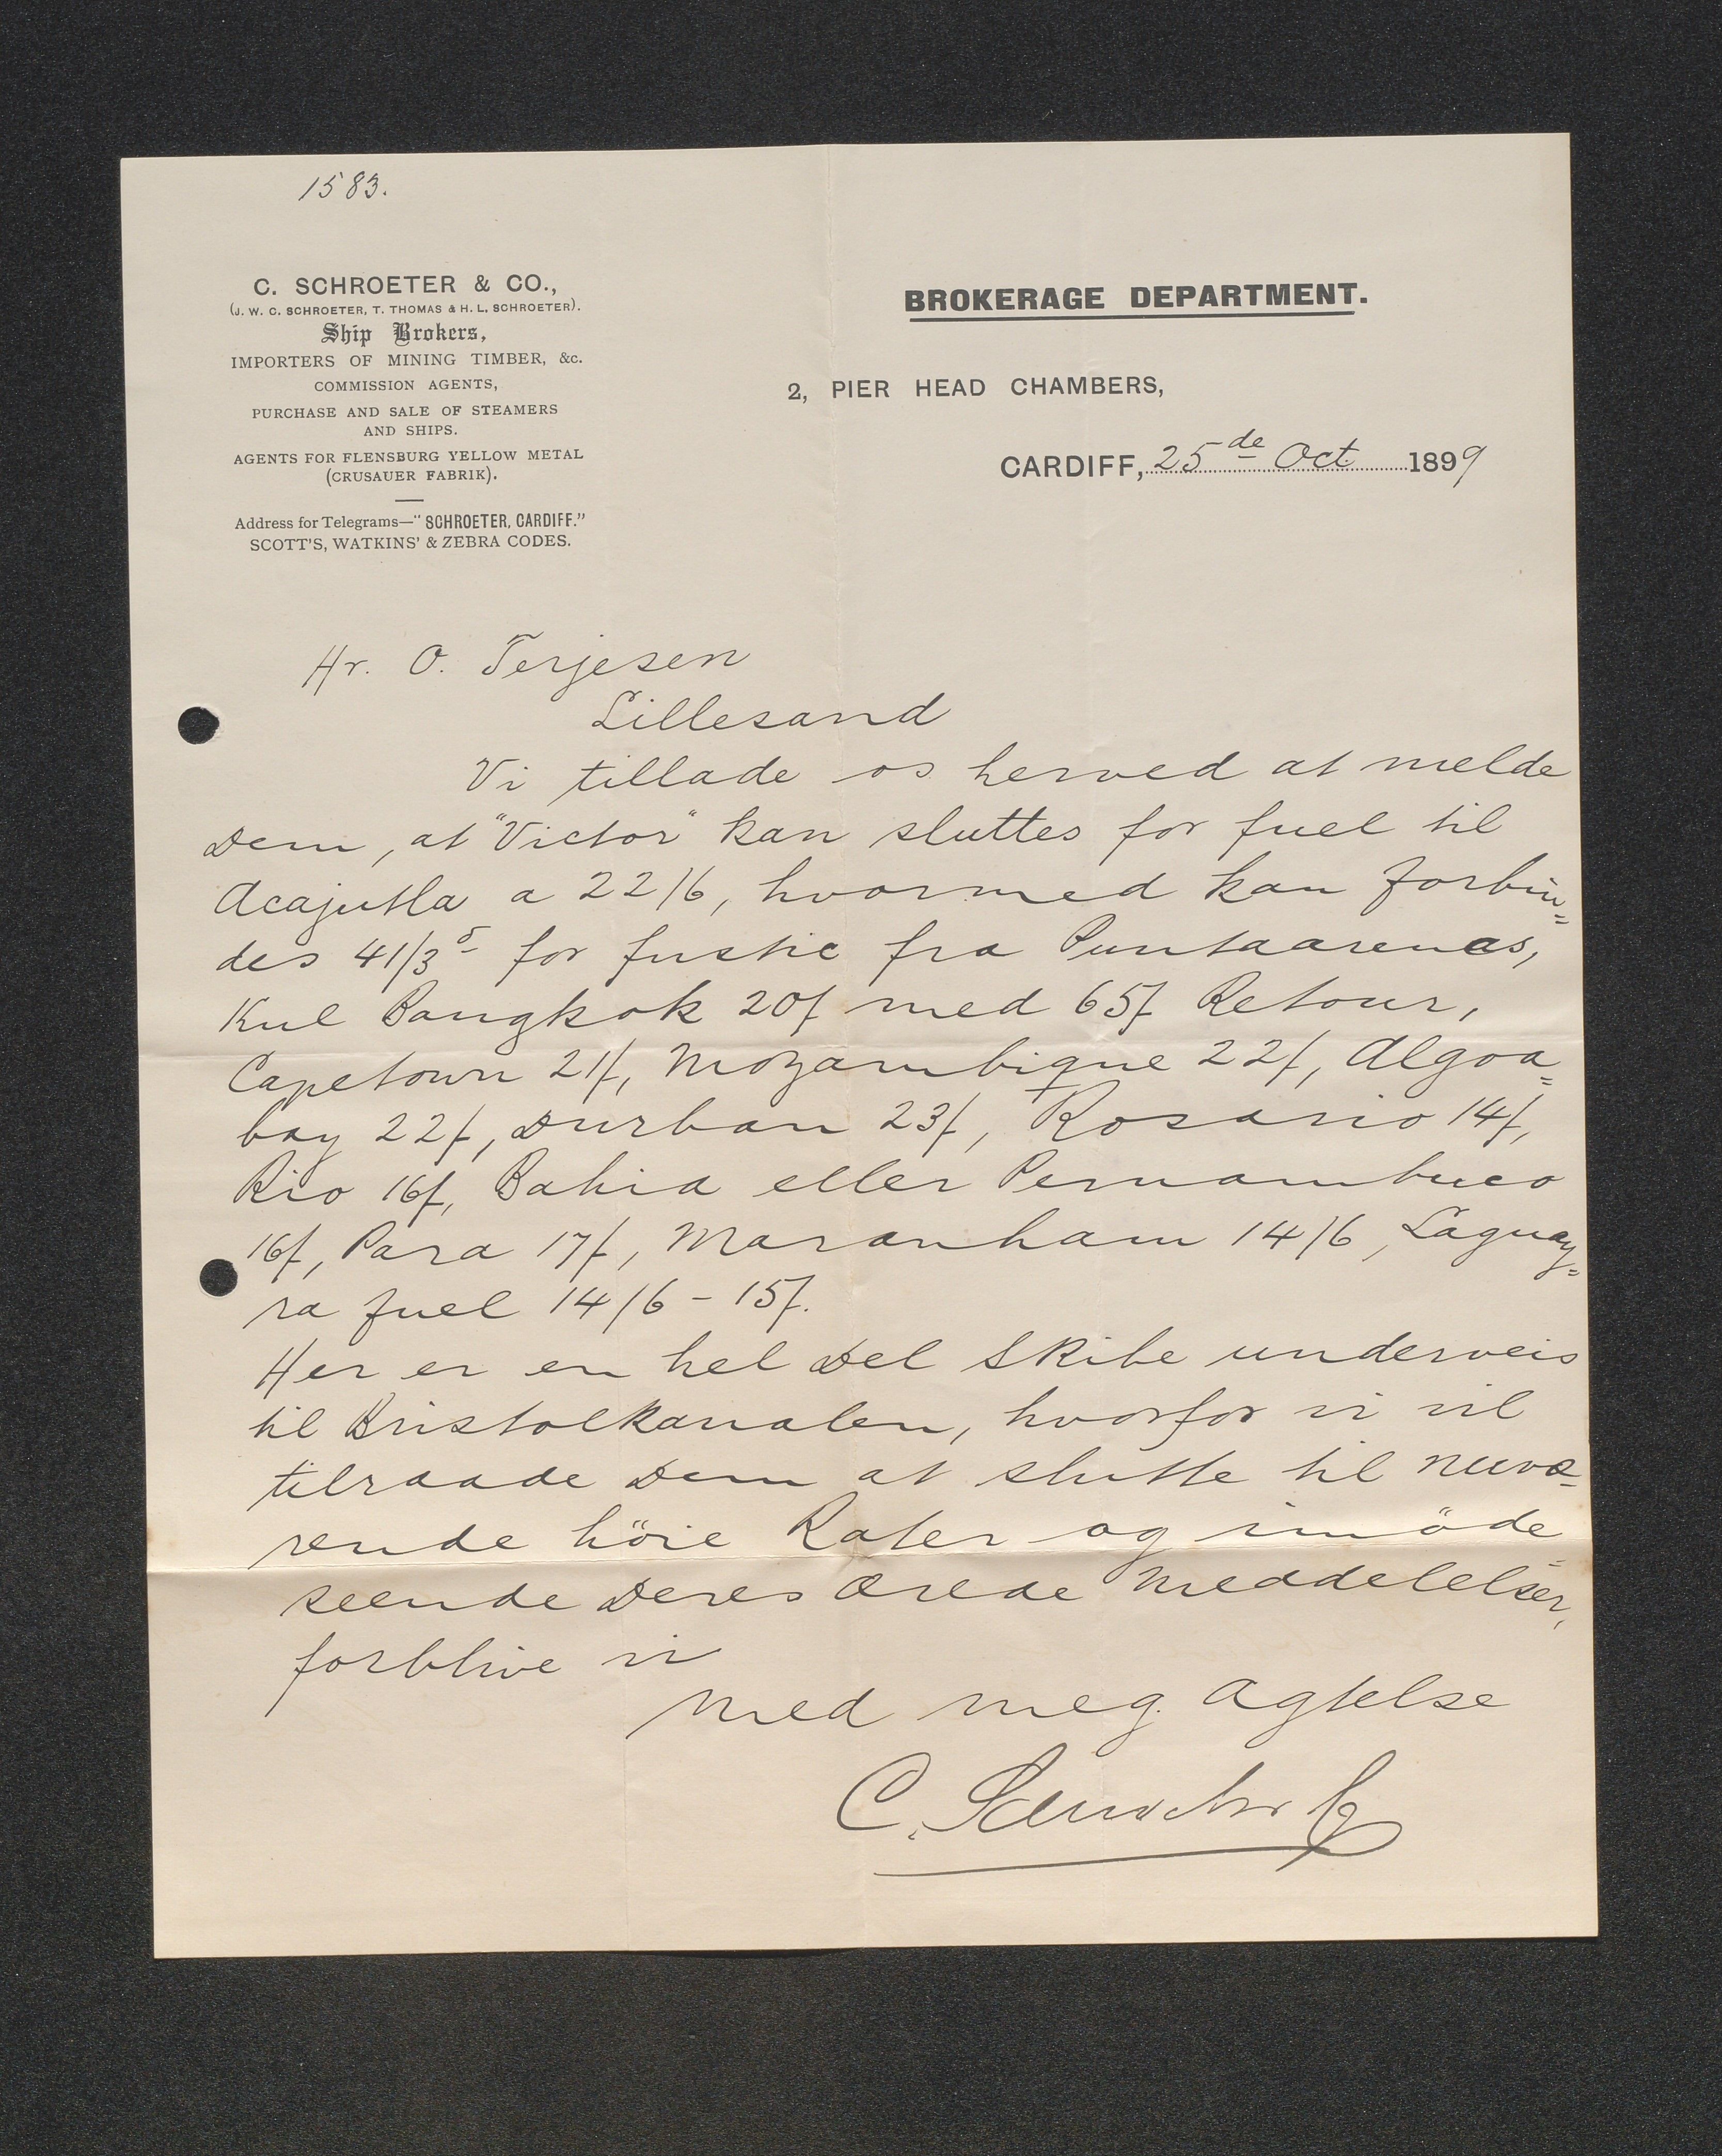 1583.
C. SCHROETER & CO.,
(J. W. C. SCHROETER, T. THOMAS & H. L. SCHROETER).
Ship Brokers,
IMPORTERS OF MINING TIMBER, &c.
COMMISSION AGENTS,
PURCHASE AND SALE OF STEAMERS
AND SHIPS.
AGENTS FOR FLENSBURG YELLOW METAL
(CRUSAUER FABRIK).
Address for Telegrams—"SCHROETER, CARDIFF."
SCOTT'S, WATKINS' & ZEBRA CODES.
BROKERAGE DEPARTMENT.
2, PIER HEAD CHAMBERS,
CARDIFF, 25de Oct. 1899
Hr. O. Terjesen
Lillesand
Vi tillade os herved at melde
Dem, at "Victor" kan sluttes for fuel til
Acajutla a 22/6, hvormed kan forbin=
des 41/3 for fustic fra Puntaarenas,
Kul Bangkok 20/ med 65/ Retour,
Capetown 21/, Mozambique 22/, Algoa=
bay 22/, Durban 23/, Rosario 14/,
Rio 16/, Bahia eller Pernambuco
16/, Para 17/, Maranham 14/6, Laguay=
ra fuel 14/6 - 15/.
Her er en hel Del Skibe underveis
til Bristolkanalen, hvorfor vi vil
tilraade Dem at slutte til nuvæ=
rende höie Rater og imöde=
seende Deres ærede Meddelelser,
forblive vi
Med meg. Agtelse
C. Schroeter & Co